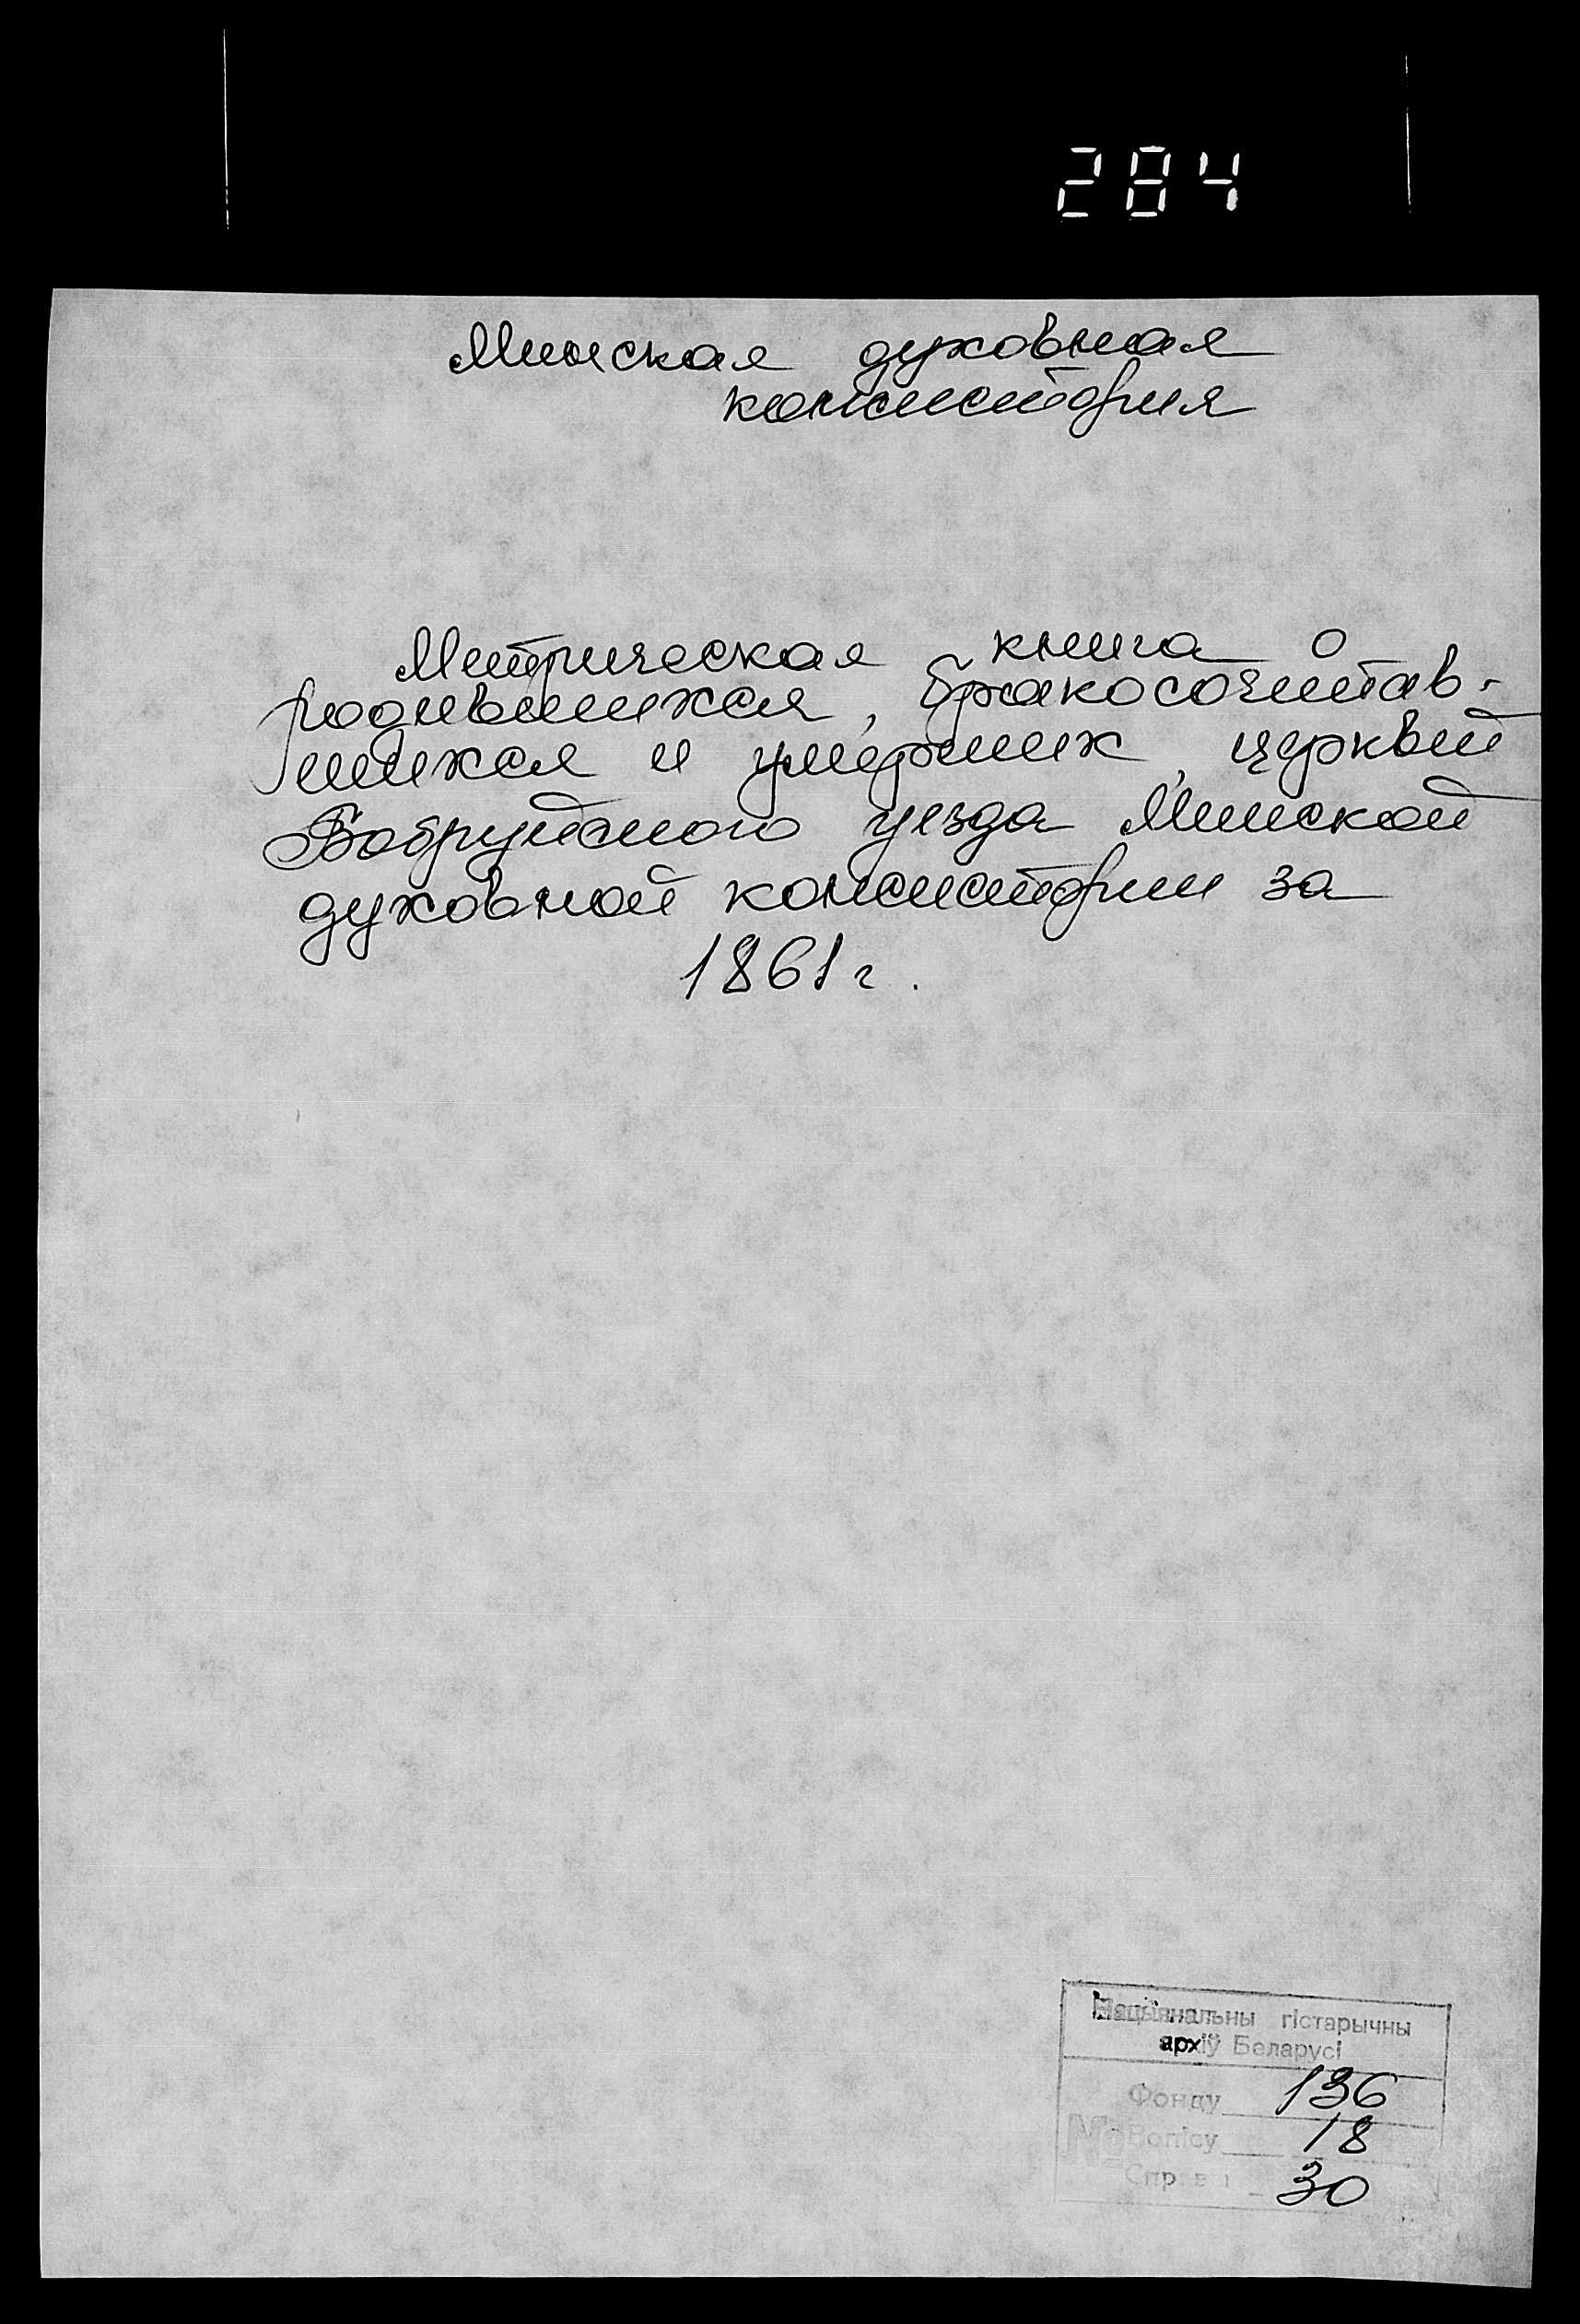 284
Минская духовная
консистория
Метрическая книга о
родившихся, бракосочетав-
шихся и умерших, церквей
Бобруйского уезда Минской
духовной консистории за
1861 г.
Нацыянальны гістарычны
архіў Беларусі
Фонду 136
№ Вопісу 18
Справы 30